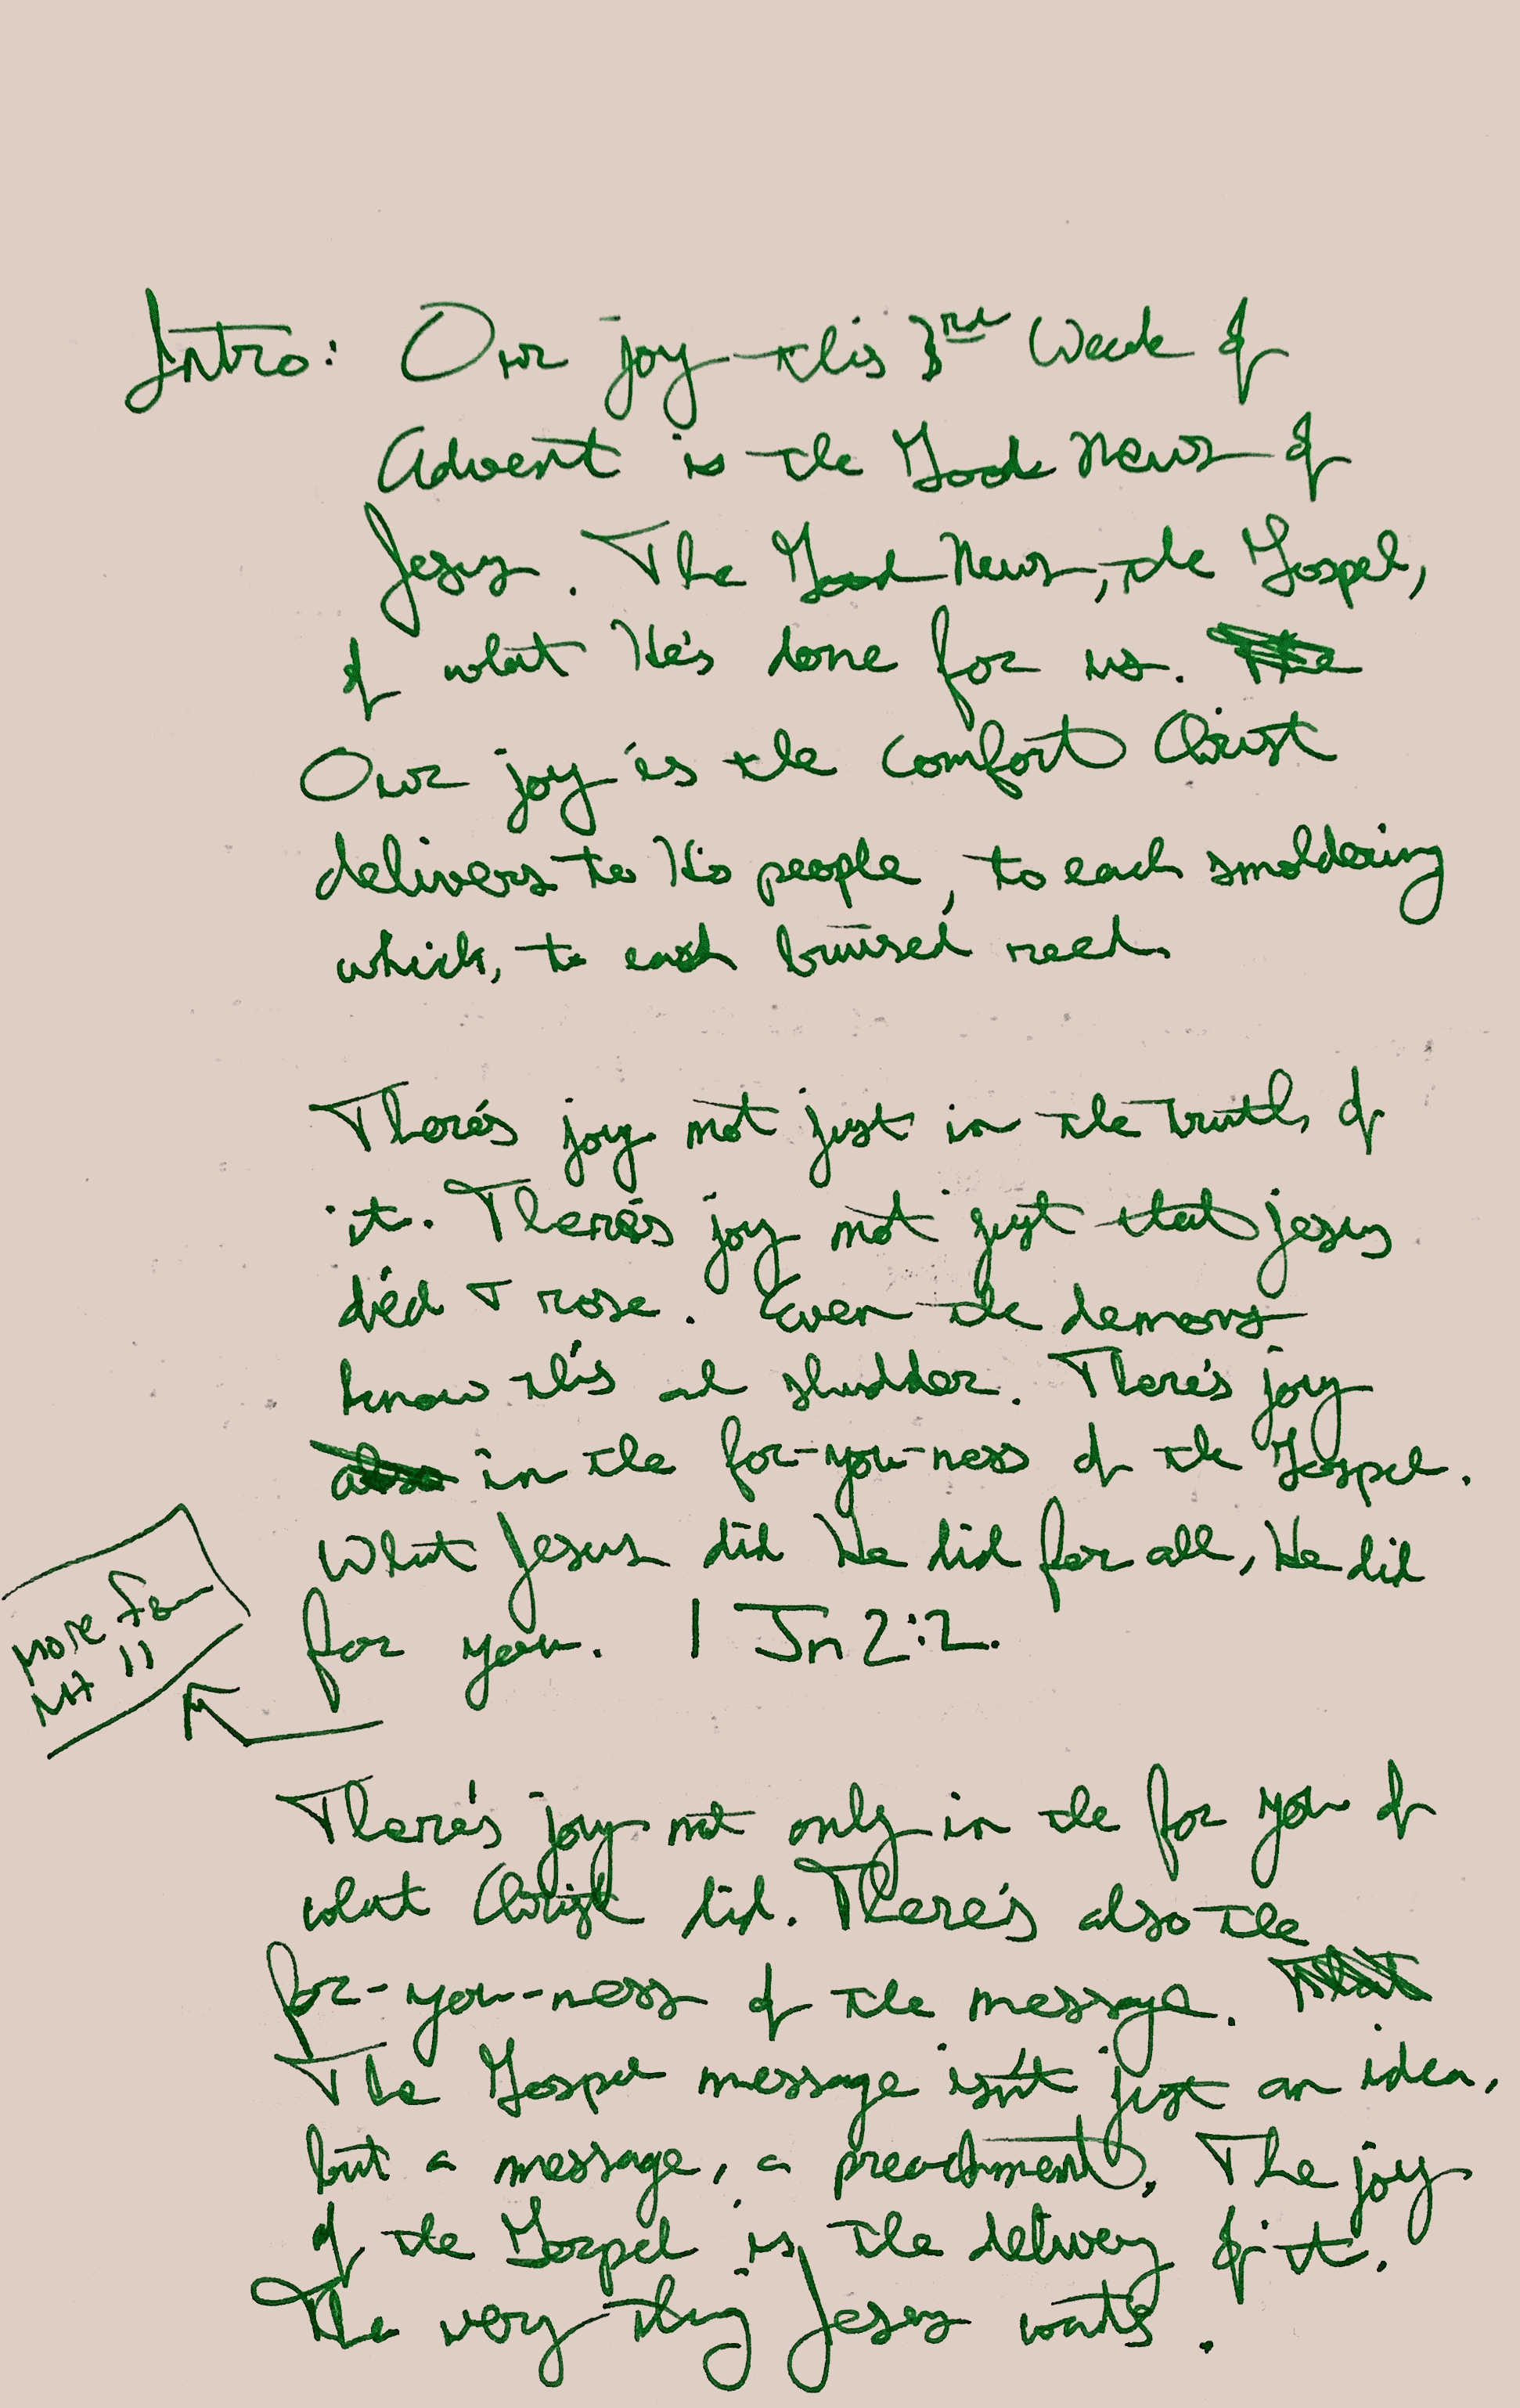 Intro: Our joy this 3rd Week of
Advent is the Good News of
Jesus. The Good News, the Gospel,
of what He's done for us. The
Our joy is the comfort Christ
delivers to His people, to each smoldering
whick, to each bruised reed.
There's joy not just in the truth of
it. There's joy not just that Jesus
died + rose. Even the demons
know this and shudder. There's joy
also in the for-you-ness of the Gospel.
What Jesus did He did for all, He did
for you. 1 Jn 2:2.
More
Mt 11
There's joy not only in the for you of
what Christ did. There's also the
for-you-ness of the message.
The Gospel message isn't just an idea,
but a message, a preachment. The joy
of the Gospel is the delivery of it.
The very thing Jesus wants.